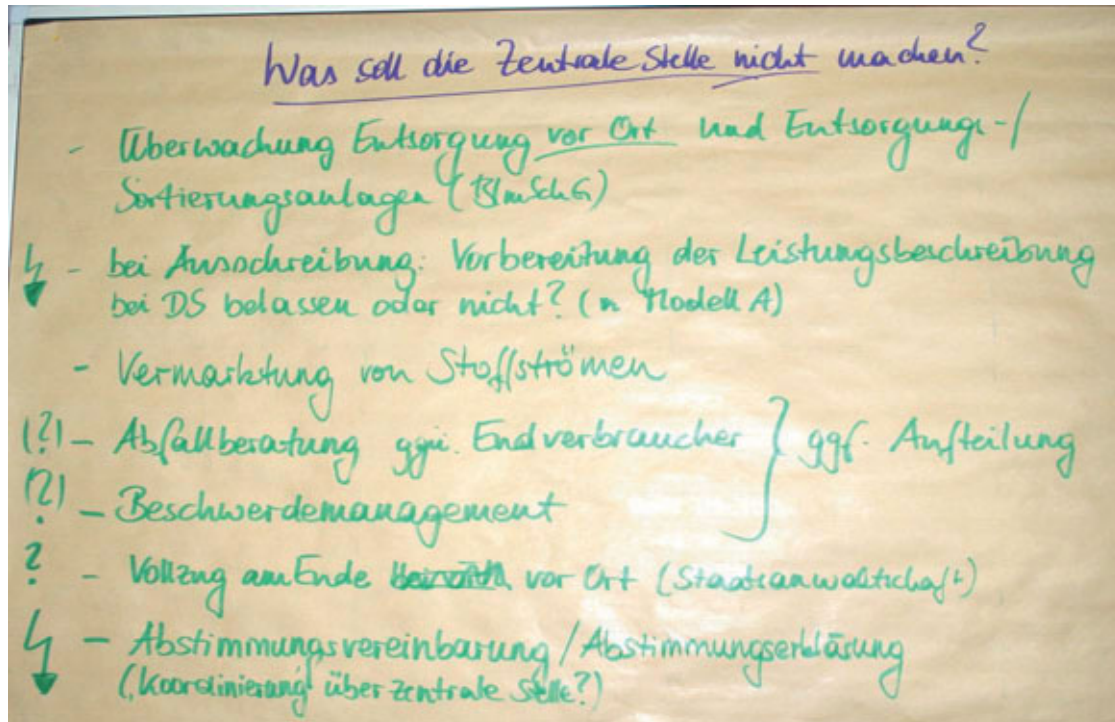 Was soll die Zentrale Stelle nicht machen?
- Überwachung Entsorgung vor Ort und Entsorgungs-/
Sortierungsanlagen (BImSchG)
- bei Ausschreibung: Vorbereitung der Leistungsbeschreibung
bei DS belassen oder nicht? (n Modell A)
- Vermarktung von Stoffströmen
(?) - Abfallberatung ggü. Endverbraucher } ggf. Aufteilung
(?) - Beschwerdemanagement
? - Vollzug am Ende vor Ort (Staatsanwaltschaft)
- Abstimmungsvereinbarung / Abstimmungserklärung
(Koordinierung über zentrale Stelle?)